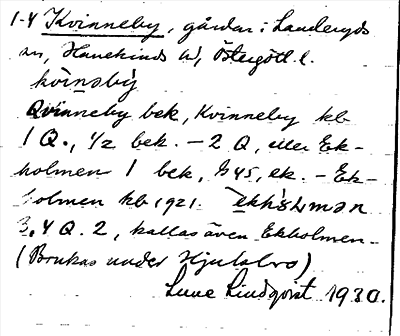 1-4 Kvinneby, gårdar i Landeryds
sn, Hanekinds hd, Östergötl. l.
kv̀i̇nəby
Qvinneby bek, Kvinneby kb
1 Q., 1/2 bek. – 2 Q, eller Ek-
holmen 1 bek, J45, ek. – Ek-
holmen kb 1921.
3,4 Q. 2, kallas även Ekholmen –
(Brukas under Hjulsbro)
Sune Lindqvist 1930.